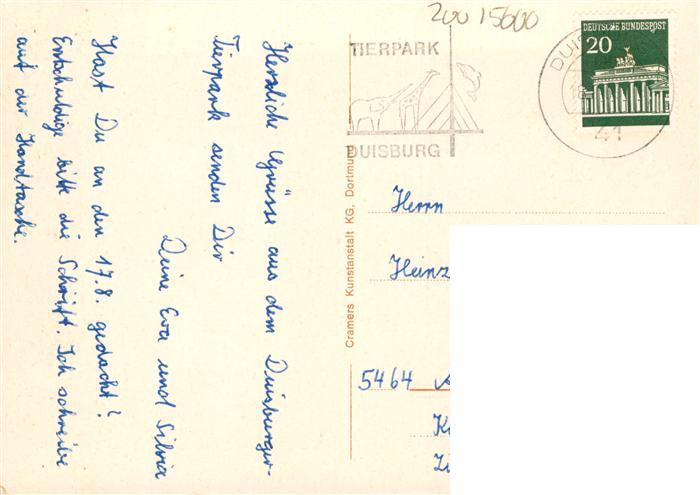 200 15600
DEUTSCHE BUNDESPOST
20
TIERPARK
DUISBURG
41
Herzliche Grüsse aus dem Duisburger-
Tierpark senden Dir
Deine Eva und Silvia
Hast Du an den 17.8. gedacht?
Entschuldige bitte die Schrift. Ich schreibe
auf der Handtasche.
Cramers Kunstanstalt KG, Dortmund
Herrn
Heinz
5464